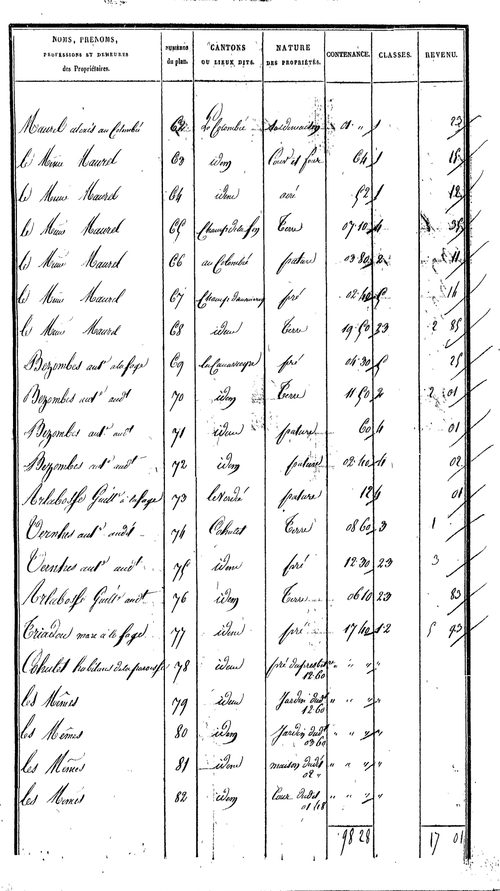 NOMS, PRÉNOMS, PROFESSIONS ET DEMEURES des Propriétaires. NUMÉROS du plan. CANTONS OU LIEUX DITS. NATURE DES PROPRIÉTÉS. CONTENANCE. CLASSES. REVENU.
Maurel alexis au Colombié 62 Le Colombié 01 " 1 23
le Même Maurel 63 idem 64 1 15
le Même Maurel 64 idem 52 1 12
le Même Maurel 65 Terre 07 10 4 35
le Même Maurel 66 au Colombié pature 03 80 2 11
le Même Maurel 67 pré 02 40 5 14
le Même Maurel 68 idem Terre 19 50 23 2 85
Bezombes ant.e a la fage 69 pré 04 30 5 25
Bezombes ant.e audt 70 idem Terre 11 50 2 2 01
Bezombes ant.e audt 71 idem pature 60 4 01
Bezombes ant.e audt 72 idem pature 02 40 4 02
Artabosse à la fage 73 pature 12 4 01
Verntres ant.e audt 74 Cohulet Terre 08 60 3 1
Verntres ant.e audt 75 idem pré 12 30 23 3
Artabosse audt 76 idem Terre 06 10 23 83
Triadou marc a la fage 77 idem pré 17 40 12 5 43
Cohulet habitans de la paroisse 78 idem pré " " " "
12 60
les Mêmes 79 idem Jardin dudt " " " "
12 60
les Mêmes 80 idem Jardin dudt " " " "
03 60
les Mêmes 81 idem maison dudt " " " "
02 "
les Mêmes 82 idem Cour dudit " " " "
01 48
98 28 17 01